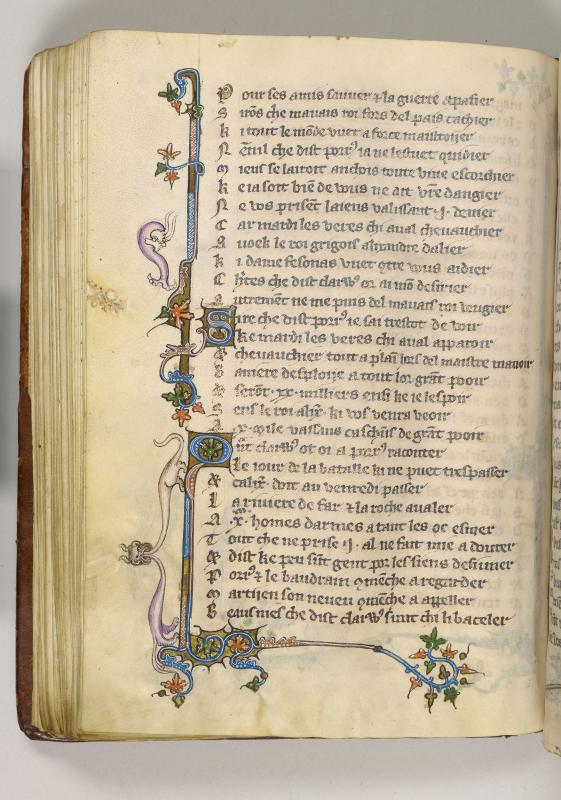 P our ses amis sauuer ⁊ la guerre apasier
S irõs che mauuais roi fors del pais cachier
K i tout le mõde vuet a force maistroijer
N enil che dist porr⁹ ia ne lestuet quidier
M ieus se lairoit anchois toute viue escorchier
K e ia soit biẽ de vous ne ait vr̃e dangier
N e vos prisẽt laiens vaillissant .j. denier
C ar mardi les veres chi aual cheuauchier
A uoek le roi grigois alixandre dalier
K i dame fesonas vuet 9tre vous aidier
C h̃tes che dist clarw⁹ or ai mõ desirier
A utremẽt ne me puis del mauuais roi vengier
S ire che dist porr⁹ ie sai trestot de voir
K e mardi les veres chi aual apparoir
& cheuauchier tout a plaĩ hors del maistre manoir
B aniere desploije a tout lor grãt pooir
& serõt .xx. milliers ensi ke ie lespoir
S ens le roi alix̃. ki vos venra veoir
A .x. mile vassaus caschũs de grãt pooir
Q ñt clarw⁹ ot oi a porr⁹ raconter
L e iour de la bataille ki ne puet trespasser
& calix̃. doit au venredi passer
L a riuiere de far ⁊ la roche aualer
A .x. homes darmes a tant les oc esmer
T out che ne prise .j. al ne fait mie a douter
& dist ke peu sũt gent por les siens desiuner
P orr⁹ ⁊ le baudrain 9mẽche a regarder
M artiien son neueu 9mẽche a appeller
B eaus nies che dist clarw⁹ sũut chi li baceler